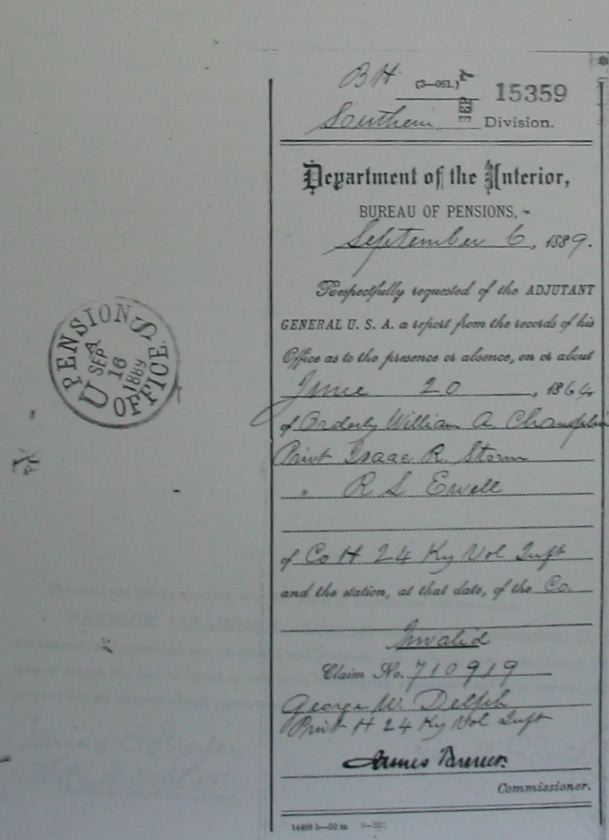 BH (3—061.)
15359
Southern Division.
Department of the Interior,
BUREAU OF PENSIONS,
September 6, 1889.
Respectfully requested of the ADJUTANT
GENERAL U. S. A. a report from the records of his
Office as to the presence or absence, on or about
June 20, 1864
of Orderly William A Champlin
Privt Isaac R. Storm
" R S Ewell
of Co H 24 Ky Vol Inft
and the station, at that date, of the Co.
Invalid
Claim No. 710919
George W. Delph
Privt H 24 Ky Vol Inft
Commissioner.
U S PENSION OFFICE
SEP
16
1889